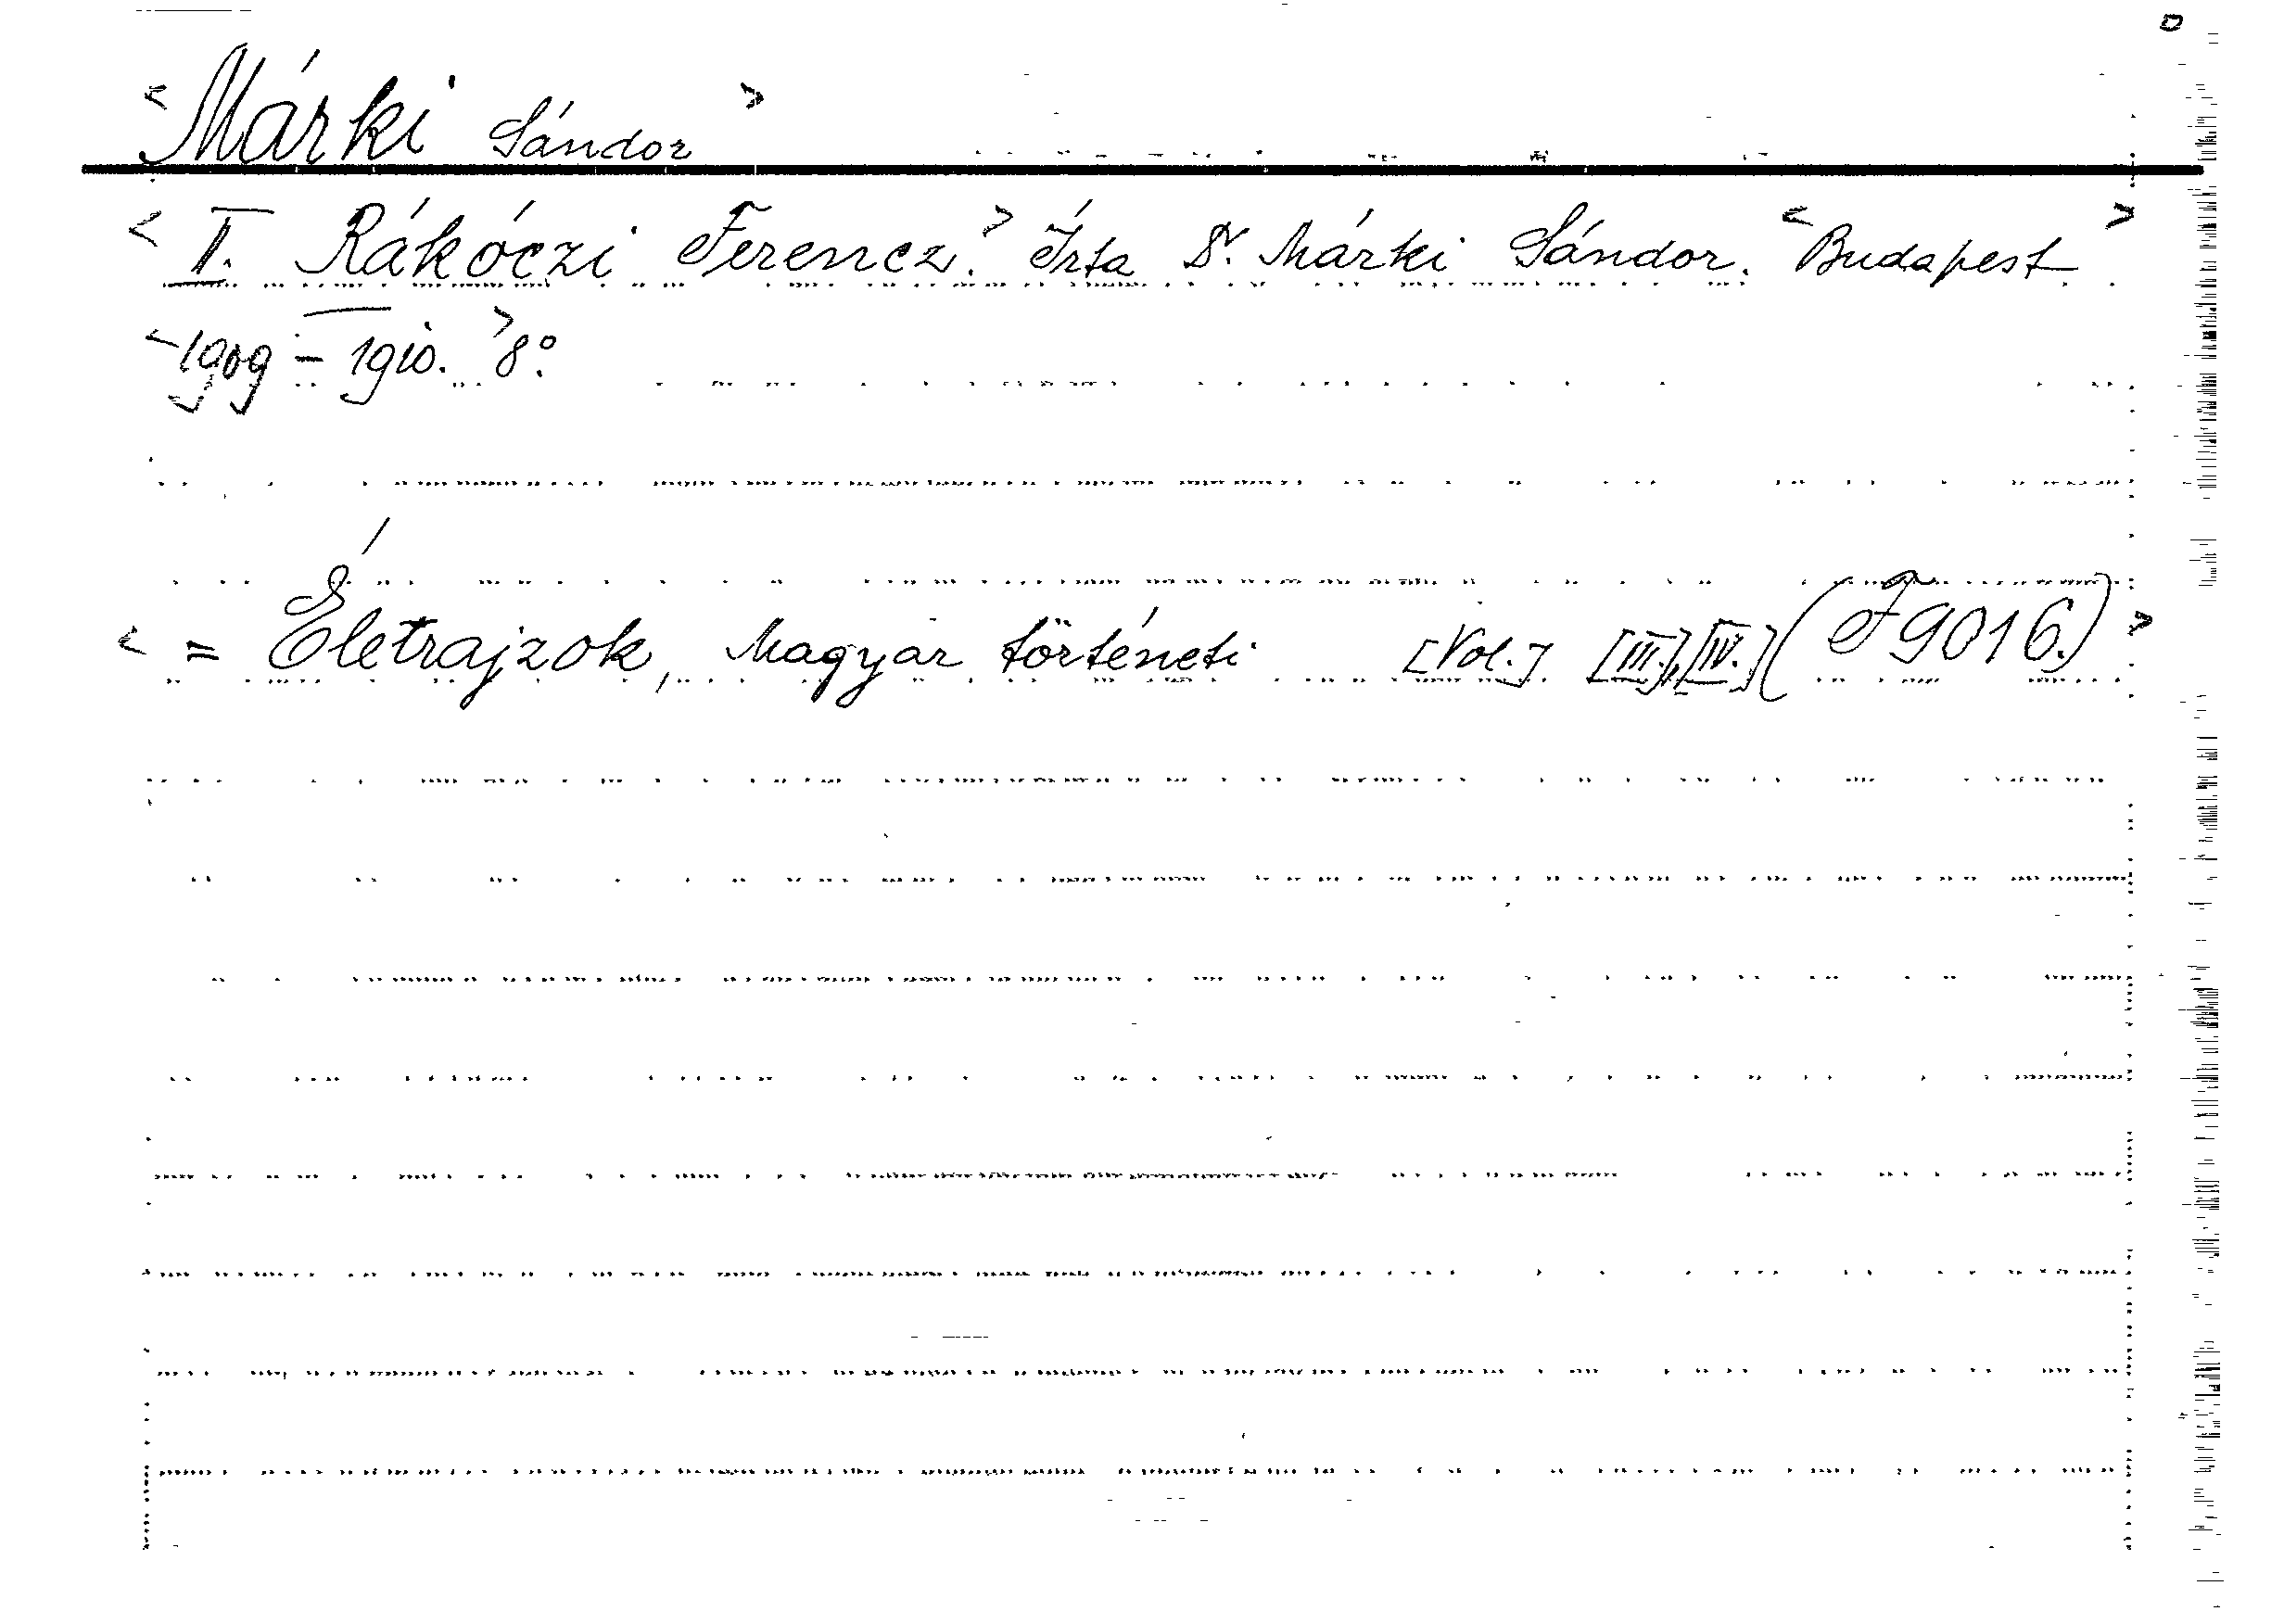 < Márki Sándor >
< II. Rákóczi Ferencz. > Írta Dr. Márki Sándor. < Budapest >
< 1909 - 1910. > 8°.
< = Életrajzok, Magyar történeti [Vol.] [III.], [IV.] (F 9016.) >